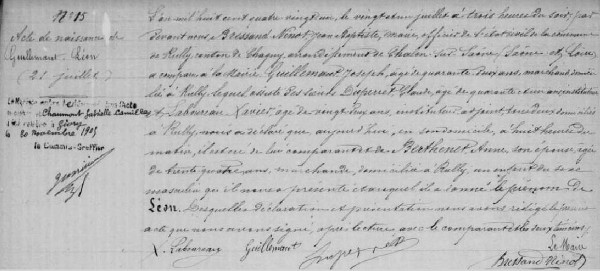 N° 15
Acte de naissance de
Guillemont Léon
(21 juillet)
Chaumont Gabrielle Camille
à Givry
le 30 Novembre 1905
le Greffier
L'an mil huit cent quatre vingt, le vingt juillet à trois heures du soir, par
devant nous Bressand Ninot Jean Baptiste, maire, officier de l'état civil de la commune
de Rully, canton de Chagny, arrondissement de Chalon sur Saône, Saône et Loire,
a comparu à la Mairie Guillemont Joseph, âgé de quarante deux ans, marchand domi
cilié à Rully, lequel assisté des Claude, âgé de quarante ans,
Laboureau Xavier, âgé de vingt ans, instituteur adjoint, tous deux domiciliés
à Rully, nous a déclaré que aujourd'hui, en son domicile, à huit heures du
matin, il est né de lui comparant et de Berthenet Anne son épouse, âgée
de trente quatre ans, marchande, domiciliée à Rully, un enfant du sexe
masculin qu'il nous a présenté et auquel il a donné le prénom de
Léon. Lesquelles déclaration et présentation nous avons rédigé le présent
acte que nous avons signé, après lecture avec le comparant et les deux témoins,
Le Maire
X. Laboureau Guillemont
Bressand Ninot